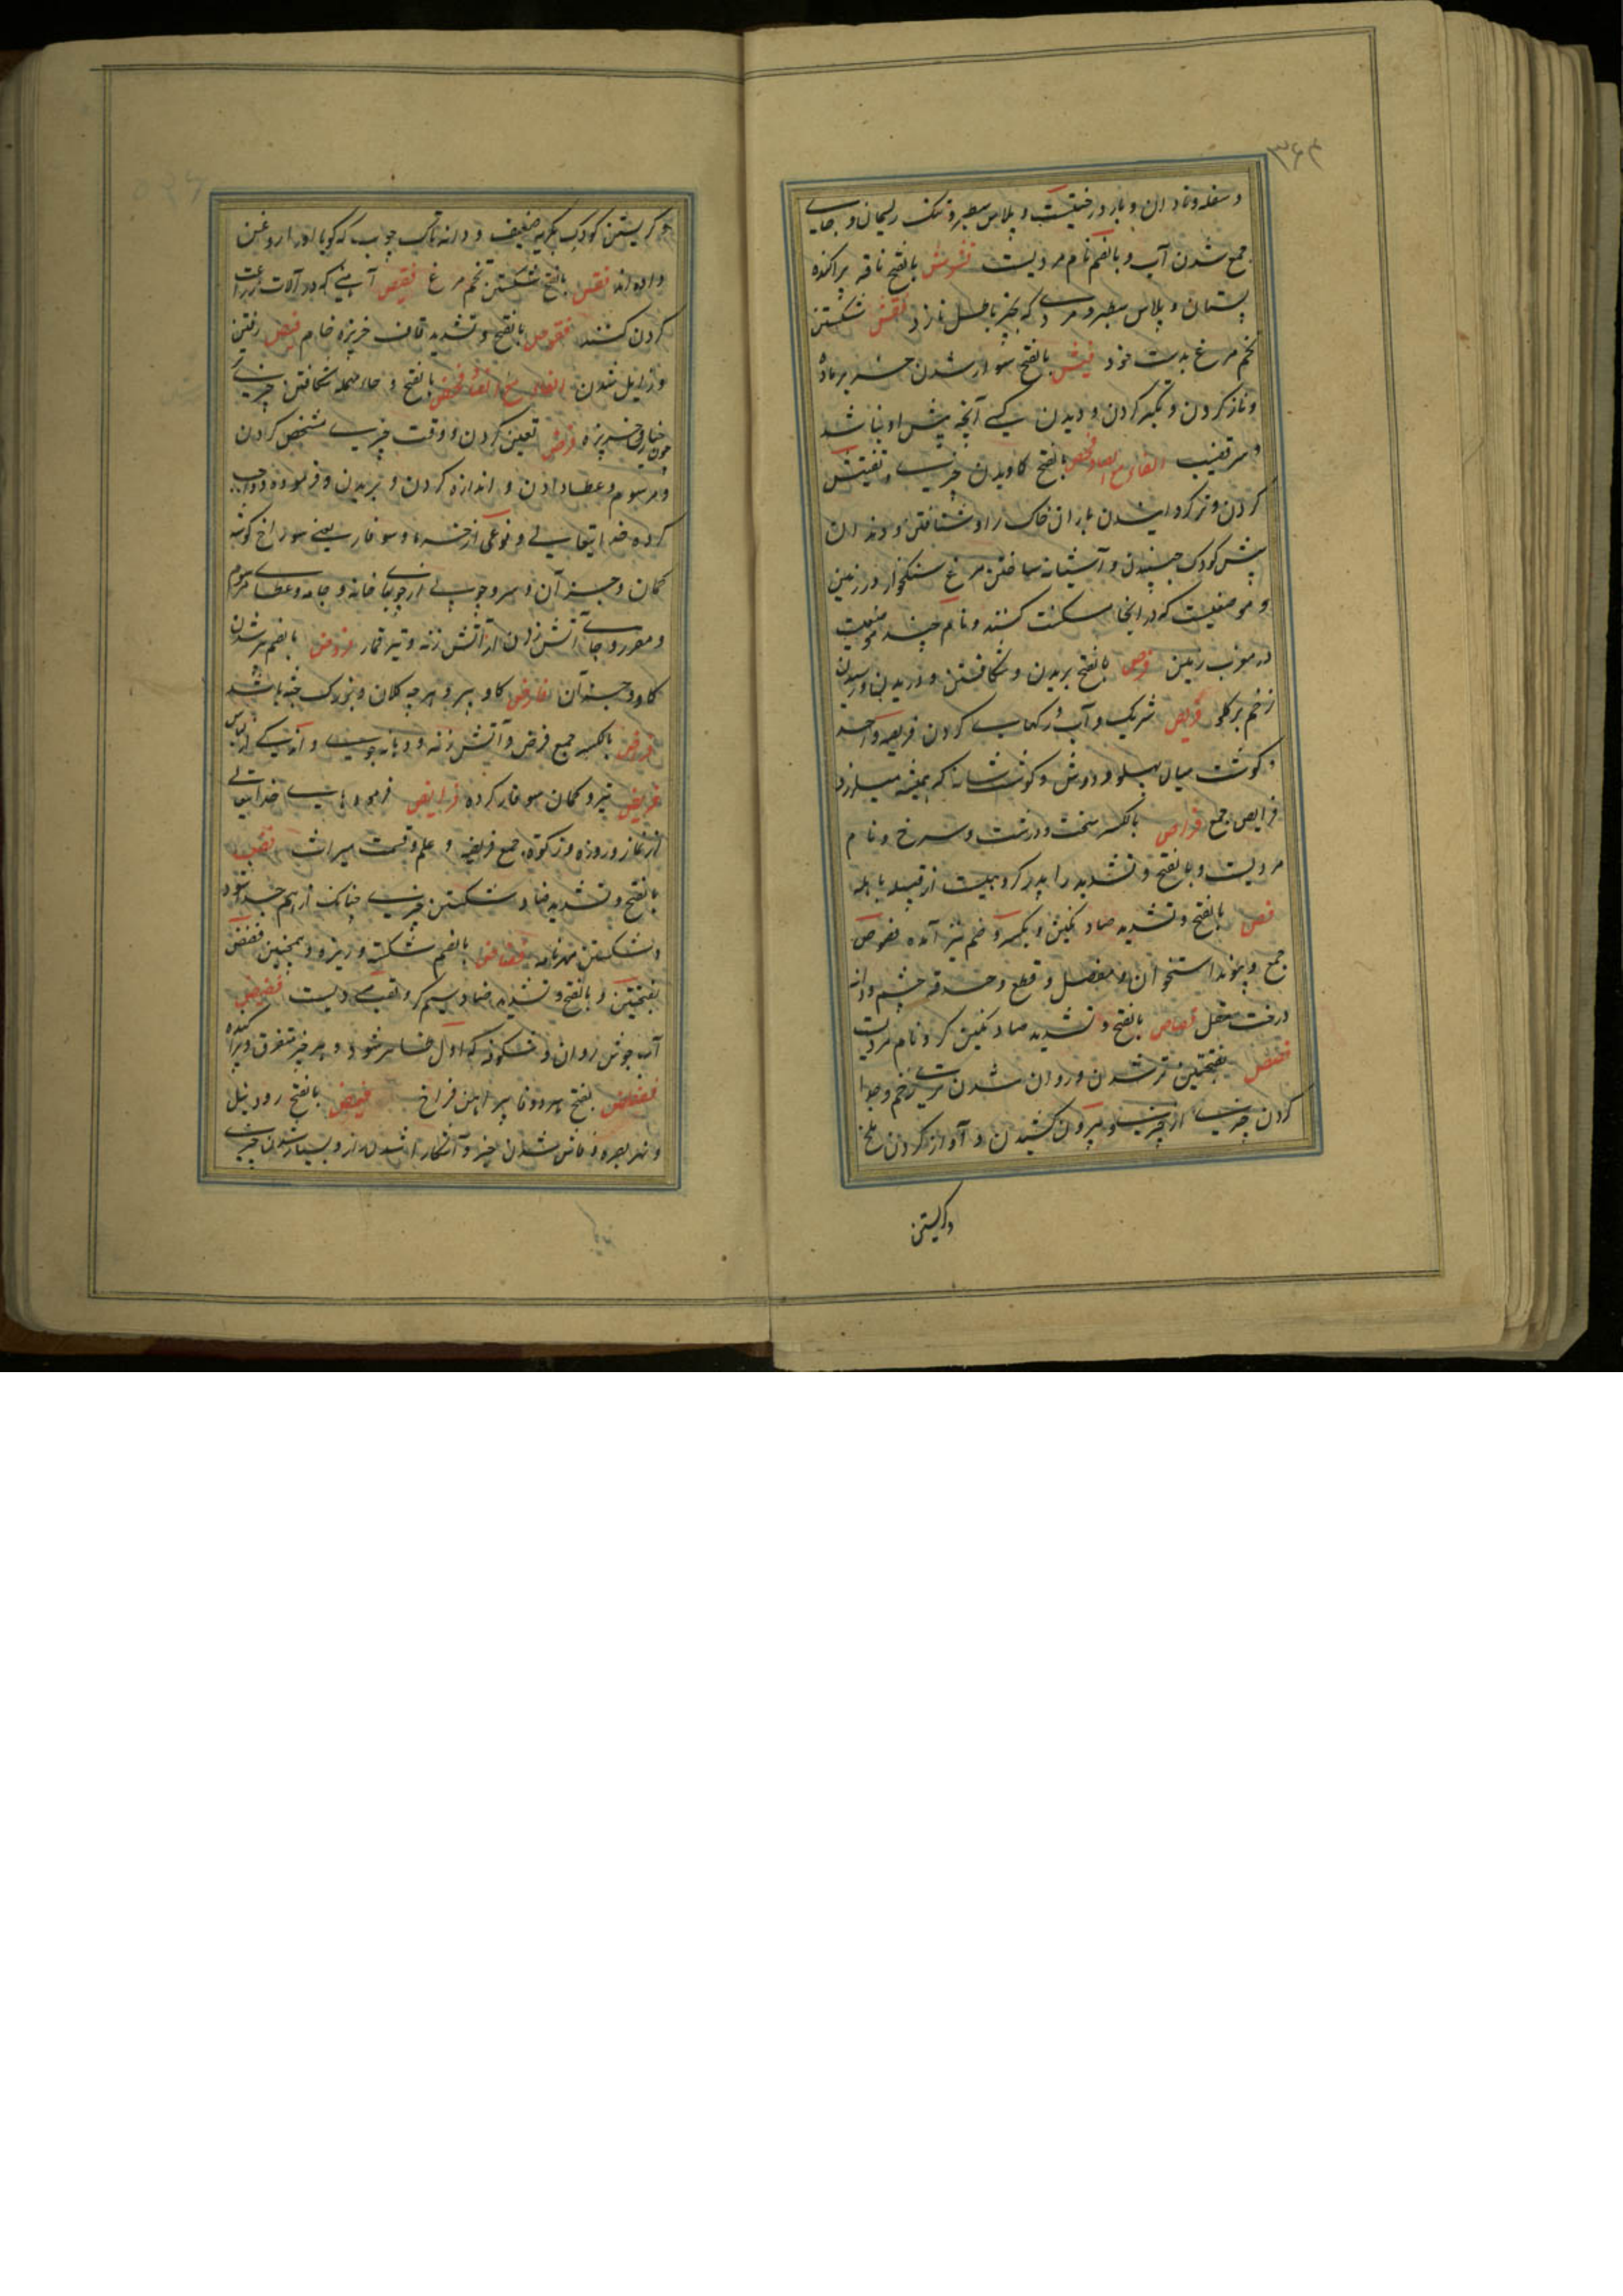 ۳۶۴
و سفله و نادان و بار درختیست و پلاس سطبر و تنک ریسمان و جای
جمع شدن آب و بالضم نام مردیست فشوش بالفتح ناقه پراکنده
پستان و پلاس سطبر و مردی که بچیز باطل نازد فقش شکستن
تخم مرغ بدست خود فیش بالفتح سوار شدن خر بر ماده
و ناز کردن و تکبر کردن و دیدن کسی آنچه پیش او نباشد
الفاء مع الصاد فحص بالفتح کاویدن چیزی و تفتیش
کردن و باران خاک را و شتافتن و دندان
پیش کودک جنبیدن و آشیانه ساختن مرغ سنکخوار در زمین
و موضعیست که در انجا سکنت کنند و نام چند موضعیت
در مغرب زمین فرص بالفتح بریدن و شکافتن و دریدن و رسیدن
زخم بر کلو فریص شریک و آب و رکهای کردن فریصه واحد
و کوشت میان پهلو و دوش و کوشت شانه که همیشه میلرزد
فرایص جمع فراص بالکسر سخت و درشت و سرخ و نام
مردیست و بالفتح و تشدید را پدر کروهیست از قبیله باهله
فص بالفتح و تشدید صاد نکین و بکسر و ضم نیز آمده فصوص
جمع و پیوند استخوان و مفصل و قطع و حدقه چشم و دانه
درخت مقل فصاص بالفتح و تشدید صاد نکین کر و نام مردیست
بفتحتین تر شدن و روان شدن زخم و جدا
کردن چیزی از چیزی و بیرون کشیدن و آواز کردن ملخ
و کریستن
و کریستن کودک بکریه ضعیف و دانه تاک چوب که کویا او را روغن
داده اند فقص بالفتح شکستن تخم مرغ فقیص آهنی که در آلات زراعت
کردن کنند فقوص بالفتح و تشدید قاف خرپزه خام فیص رفتن
و زایل شدن الفاء مع الضاد فحض بالفتح و حاء مهمله شکافتن چیزی
چون خیار و خرپزه فرض تعیین کردن و وقت چیزی مشخص کردن
و مرسوم و عطا دادن و اندازه کردن و بریدن و فرموده و واجب
کرده خدایتعالی و نوعی از خرما و سوفار یعنی سوراخ کوشه
کمان و جز آن و سپر و چوبی از چوبها خانه و جامه و عطای مرسوم
و مقرر و جای آتش زدن از آتش زنه و تیر قمار فروض بالضم پیر شدن
کاو و جز آن فارض کاو پیر و هر چه کلان و بزرک جثه باشد
فراض بالکسر جمع فرض و آتش زنه و دهانه جوی و اندکی از لباس
فریض تیر و کمان سوفار کرده فرایض فرموده های خدایتعالی
از نماز و روزه و زکوة جمع فریضه و علم و قسمت میراث فض
بالفتح و تشدید ضاد شکستن چیزی چنانکه از هم جدا شود
و شکستن مهر نامه فضاض بالضم شکسته و ریزه و همچنین فضض
بفتحتین و بالفتح و تشدید ضاد سیم کر و لقب مردیست فضیض
آب خوش روان و شکوفه که اول ظاهر شود و هر چیز متفرق و پراکنده
فضفاض بفتح هر دو فا پیراهن فراخ فیض بالفتح رود نیل
و نهر بصره و فاش شدن خبر و آشکارا شدن راز و بسیار شدن چیزی